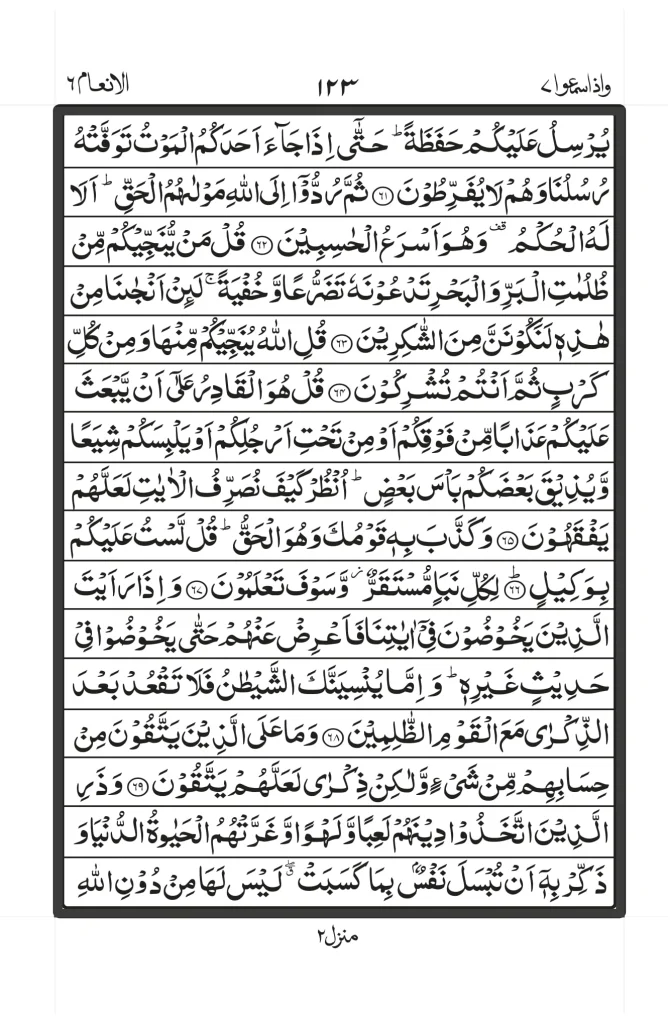 واذاسمعوا ۷ ۱۲۳ الانعام ۶
يُرْسِلُ عَلَيْكُمْ حَفَظَةً ؕ حَتّٰٓى اِذَا جَآءَ اَحَدَكُمُ الْمَوْتُ تَوَفَّتْهُ
رُسُلُنَا وَهُمْ لَا يُفَرِّطُوْنَ ۝۶۱ ثُمَّ رُدُّوْٓا اِلَى اللّٰهِ مَوْلٰىهُمُ الْحَقِّ ؕ اَلَا
لَهُ الْحُكْمُ ࣞ وَهُوَ اَسْرَعُ الْحٰسِبِيْنَ ۝۶۲ قُلْ مَنْ يُّنَجِّيْكُمْ مِّنْ
ظُلُمٰتِ الْبَرِّ وَالْبَحْرِ تَدْعُوْنَهٗ تَضَرُّعًا وَّخُفْيَةً ۚ لَئِنْ اَنْجٰىنَا مِنْ
هٰذِهٖ لَنَكُوْنَنَّ مِنَ الشّٰكِرِيْنَ ۝۶۳ قُلِ اللّٰهُ يُنَجِّيْكُمْ مِّنْهَا وَمِنْ كُلِّ
كَرْبٍ ثُمَّ اَنْتُمْ تُشْرِكُوْنَ ۝۶۴ قُلْ هُوَ الْقَادِرُ عَلٰٓى اَنْ يَّبْعَثَ
عَلَيْكُمْ عَذَابًا مِّنْ فَوْقِكُمْ اَوْ مِنْ تَحْتِ اَرْجُلِكُمْ اَوْ يَلْبِسَكُمْ شِيَعًا
وَّيُذِيْقَ بَعْضَكُمْ بَاْسَ بَعْضٍ ؕ اُنْظُرْ كَيْفَ نُصَرِّفُ الْاٰيٰتِ لَعَلَّهُمْ
يَفْقَهُوْنَ ۝۶۵ وَكَذَّبَ بِهٖ قَوْمُكَ وَهُوَ الْحَقُّ ؕ قُلْ لَّسْتُ عَلَيْكُمْ
بِوَكِيْلٍ ؕ ۝۶۶ لِكُلِّ نَبَاٍ مُّسْتَقَرٌّ ؗ وَّسَوْفَ تَعْلَمُوْنَ ۝۶۷ وَاِذَا رَاَيْتَ
الَّذِيْنَ يَخُوْضُوْنَ فِيْٓ اٰيٰتِنَا فَاَعْرِضْ عَنْهُمْ حَتّٰى يَخُوْضُوْا فِيْ
حَدِيْثٍ غَيْرِهٖ ؕ وَاِمَّا يُنْسِيَنَّكَ الشَّيْطٰنُ فَلَا تَقْعُدْ بَعْدَ
الذِّكْرٰى مَعَ الْقَوْمِ الظّٰلِمِيْنَ ۝۶۸ وَمَا عَلَى الَّذِيْنَ يَتَّقُوْنَ مِنْ
حِسَابِهِمْ مِّنْ شَيْءٍ وَّلٰكِنْ ذِكْرٰى لَعَلَّهُمْ يَتَّقُوْنَ ۝۶۹ وَذَرِ
الَّذِيْنَ اتَّخَذُوْا دِيْنَهُمْ لَعِبًا وَّلَهْوًا وَّغَرَّتْهُمُ الْحَيٰوةُ الدُّنْيَا وَ
ذَكِّرْ بِهٖٓ اَنْ تُبْسَلَ نَفْسٌۢ بِمَا كَسَبَتْ ۖ لَيْسَ لَهَا مِنْ دُوْنِ اللّٰهِ
منزل ۲